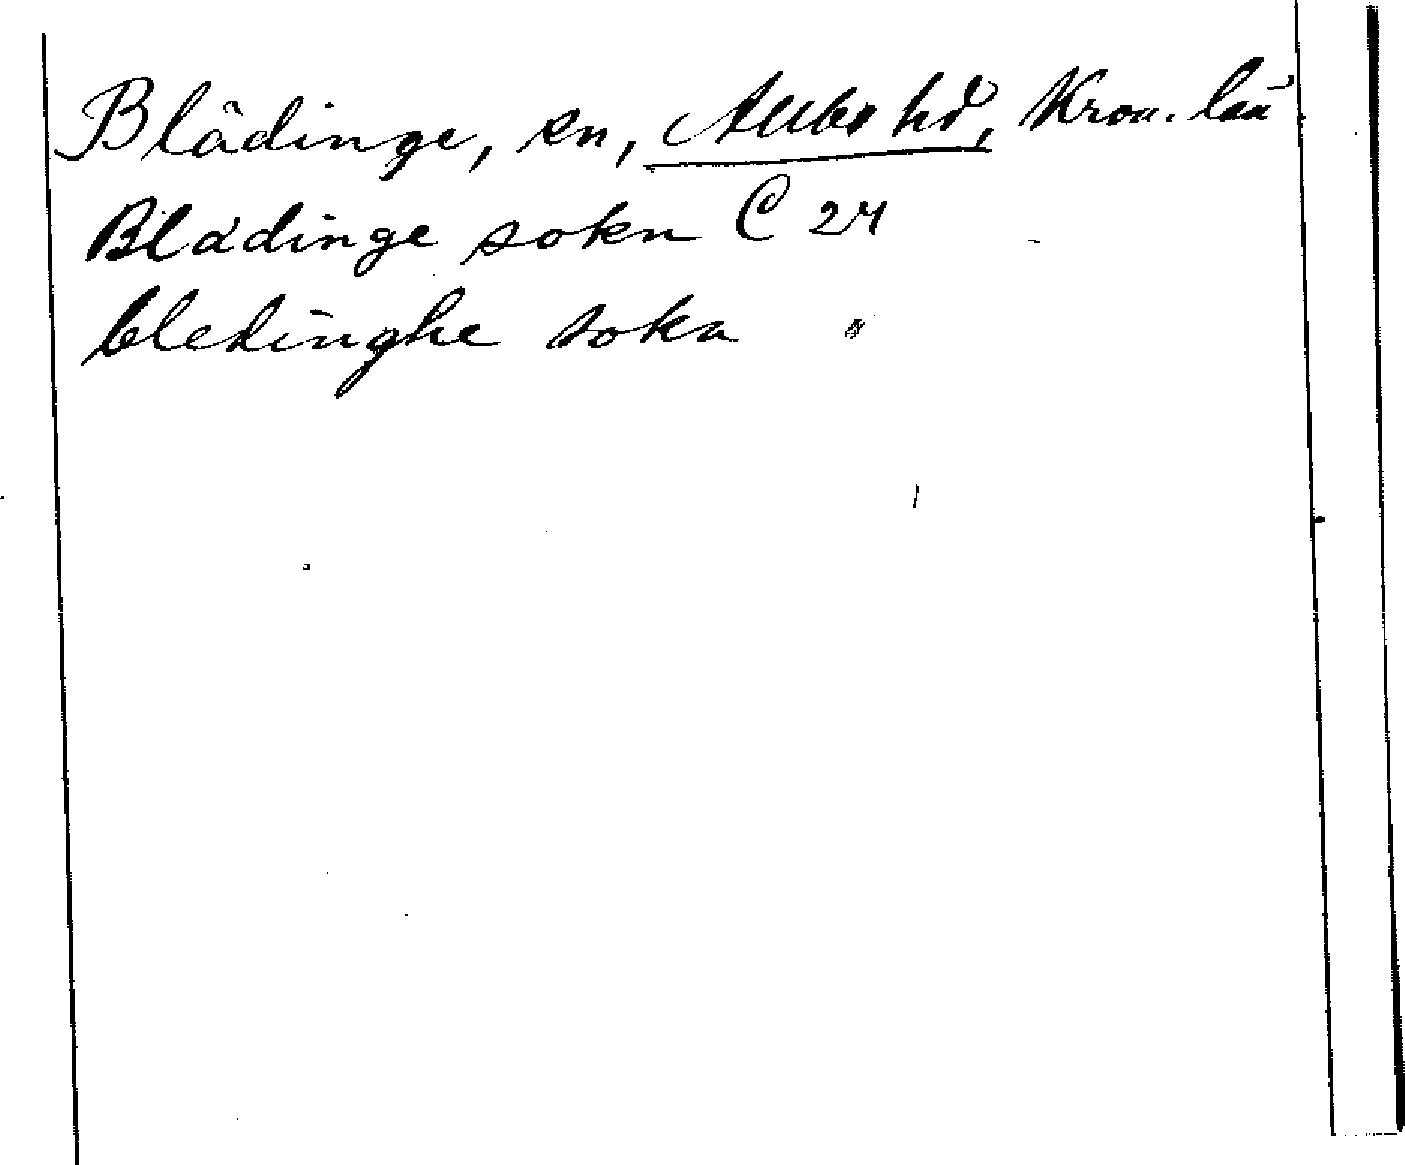 Blädinge, sn, Allbo hd, Kron. län.
Bladinge sokn C 24
bledinghe sokn "